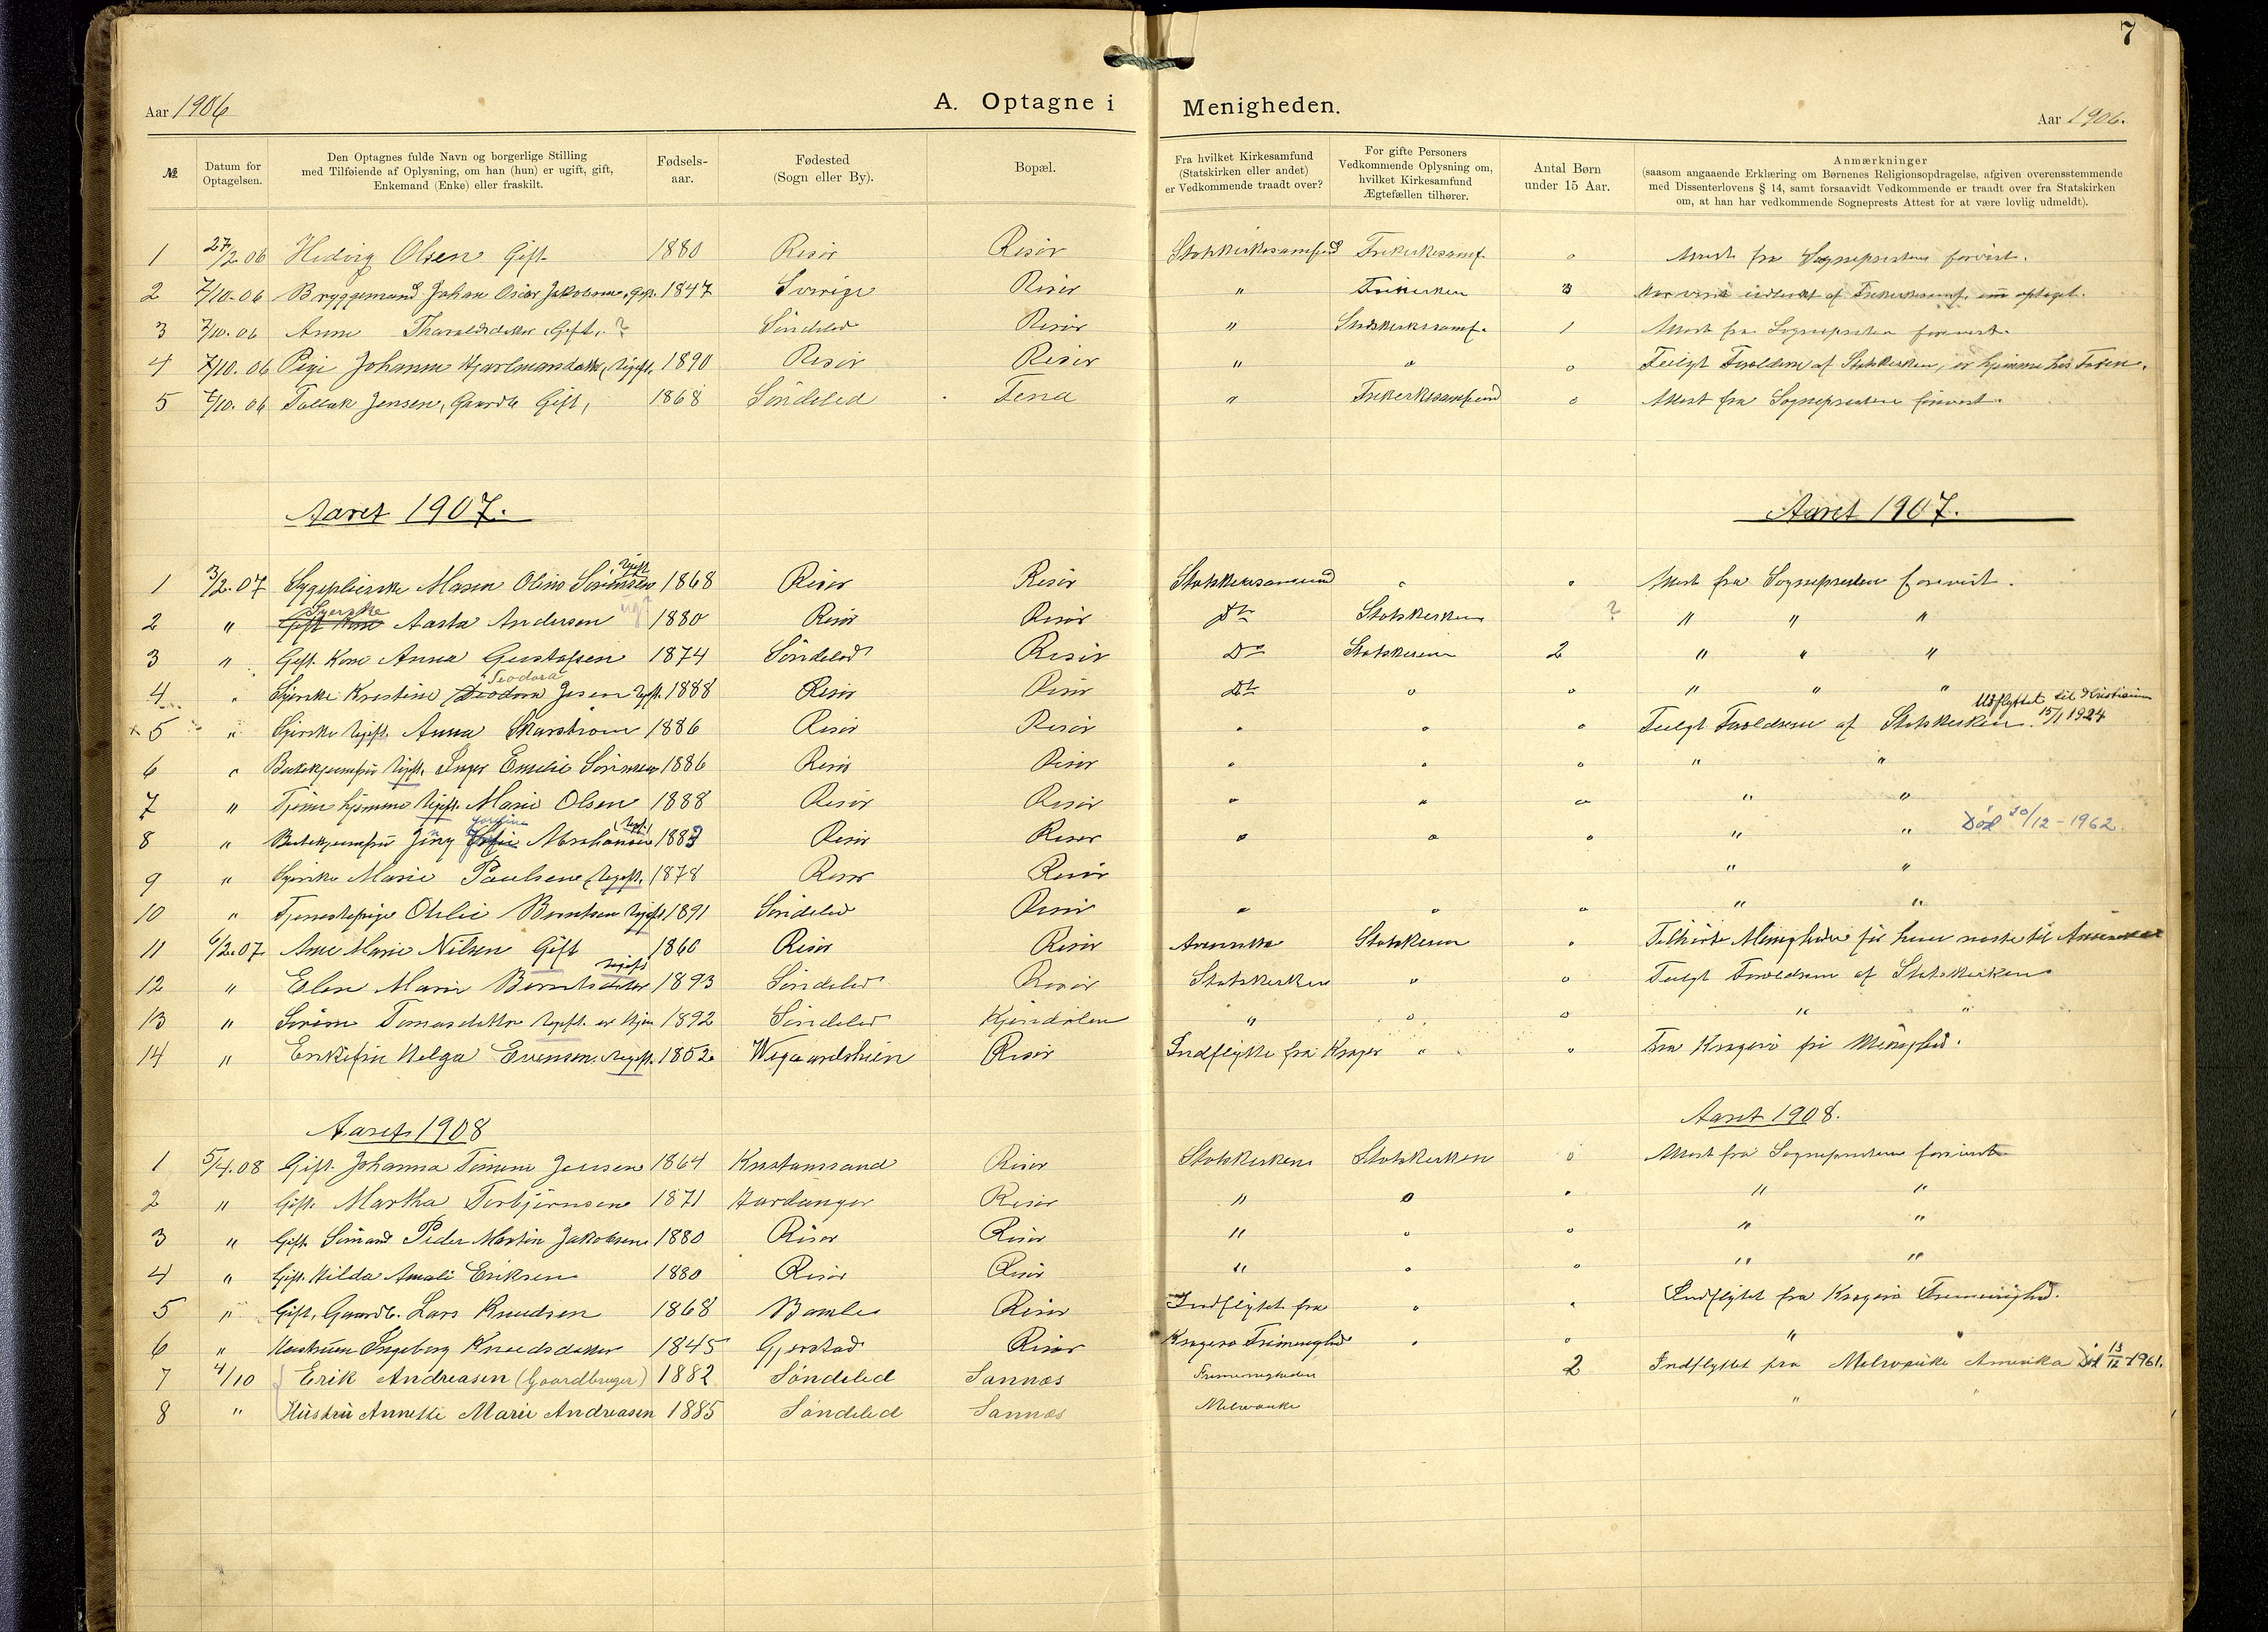 7
Aar 1906
A. Optagne i Menigheden.
Aar 1906.
№ Datum for Optagelsen. Den Optagnes fulde Navn og borgerlige Stilling med Tilføiende af Oplysning, om han (hun) er ugift, gift, Enkemand (Enke) eller fraskilt. Fødsels-aar. Fødested (Sogn eller By). Bopæl. Fra hvilket Kirkesamfund (Statskirken eller andet) er Vedkommende traadt over? For gifte Personers Vedkommende Oplysning om, hvilket Kirkesamfund Ægtefællen tilhører. Antal Børn under 15 Aar. Anmærkninger (saasom angaaende Erklæring om Børnenes Religionsopdragelse, afgiven overensstemmende med Dissenterlovens § 14, samt forsaavidt Vedkommende er traadt over fra Statskirken om, at han har vedkommende Sogneprests Attest for at være lovlig udmeldt).
1 27/2.06 Hedvig Olsen Gift 1880 Risør Risør Statskirkesamfund Frikirkesamf. o Attest fra Sognepresten forevist.
2 7/10-06 Bryggemand Johan Oscar Jakobsen, Gift. 1847 Sverige Risør " Frikirken 3 optaget.
3 7/10.06 Anne Tharaldsdatter Gift. ? Søndeled Risør " Statskirkesamf. 1 Attest fra Sognepresten forevist.
4 7/10.06 Pige Johanne Hjarlmandatter, Ugift. 1890 Risør Risør " o o Fulgt Forældrene af Statskirken, er hjemme hos Faren.
5 7/10.06 Tallak Jensen, Gaardb. Gift, 1868 Søndeled Fena " Frikirkesamfund o Attest fra Sognepresten forevist.
Aaret 1907.
Aaret 1907.
1 3/2.07 Sygepleierske Maren Oline Sørensen Ugift 1868 Risør Risør Statskirkesamfund o o Attest fra Sognepresten forevist.
2 " Gift Kone Syerske Aasta Andersen ug? 1880 Risør Risør Do Statskirken ? " " "
3 " Gift. Kone Anna Gustafsen 1874 Søndeled Risør Do Statskirken 2 " " "
4 " Syerske Kristine Teodora Teodora Jesen Ugift. 1888 Risør Risør Do o o " " "
5 " Syerske Ugift. Anna Skarstrøm 1886 Risør Risør " o o Fulgt Forældrene af Statskirken. Udflyttet til Kristiania 15/1 1924
6 " Butikjomfru Ugift. Inger Emilie Sørensen 1886 Risør Risør " o o " "
7 " Tjener hjemme Ugift. Marie Olsen 1888 Risør Risør " " o " "
8 " Butikjomfru Jenny Jorgine (Ugift) 1883 Risør Risør " o o " " Død 30/12-1962
9 " Syerske Marie Paulsen, Ugift. 1878 Risør Risør " "
10 " Tjenestepige Otilie Berntsen Ugift 1891 Søndeled Risør " o o " "
11 6/2.07 Ane Marie Nilsen Gift 1860 Risør Risør Amerika Statskirken o Tilhørte Menigheden før hun reiste til Amerika
12 " Elen Marie Berntsdatter Ugift 1893 Søndeled Risør Statskirken o o Fulgt Forældrene af Statskirken
13 " Serine Tomasdatter Ugift. 1892 Søndeled Kjendalen " o o " "
14 " Enkefru Helga Evensen. Ugift. 1852 Wegaardsheien Risør Indflytte fra Krager " o Fra Kragerø fri Menighed.
Aaret 1908
Aaret 1908.
1 5/4.08 Gift. Johanna Tomine Jensen 1864 Kristiansand Risør Statskirken Statskirken o Attest fra Sognepresten forevist
2 " Gift. Martha Torbjørnsen 1871 Hardanger Risør " o o " "
3 " Gift. Sømand Peder Martin Jakobsen 1880 Risør Risør " o o " "
4 " Gift. Hilda Amali Eriksen 1880 Risør Risør " o o " "
5 " Gift. Gaardb. Lars Knudsen 1868 Bamle Risør Indflyttet fra o o Indflytet fra Kragerø Frimenighed.
6 " Hustruen Ingeborg Knudsdatter 1845 Gjerstad Risør Kragerø Frimenighed o o " "
7 4/10 Erik Andreasen (Gaardbruger) 1882 Søndeled Sannæs Frimenigheden 2 Indflyttet fra Melwauke Amerika Død 13/12-1961.
8 " Hustru Annette Marie Andreasen 1885 Søndeled Sannæs Melwauke "